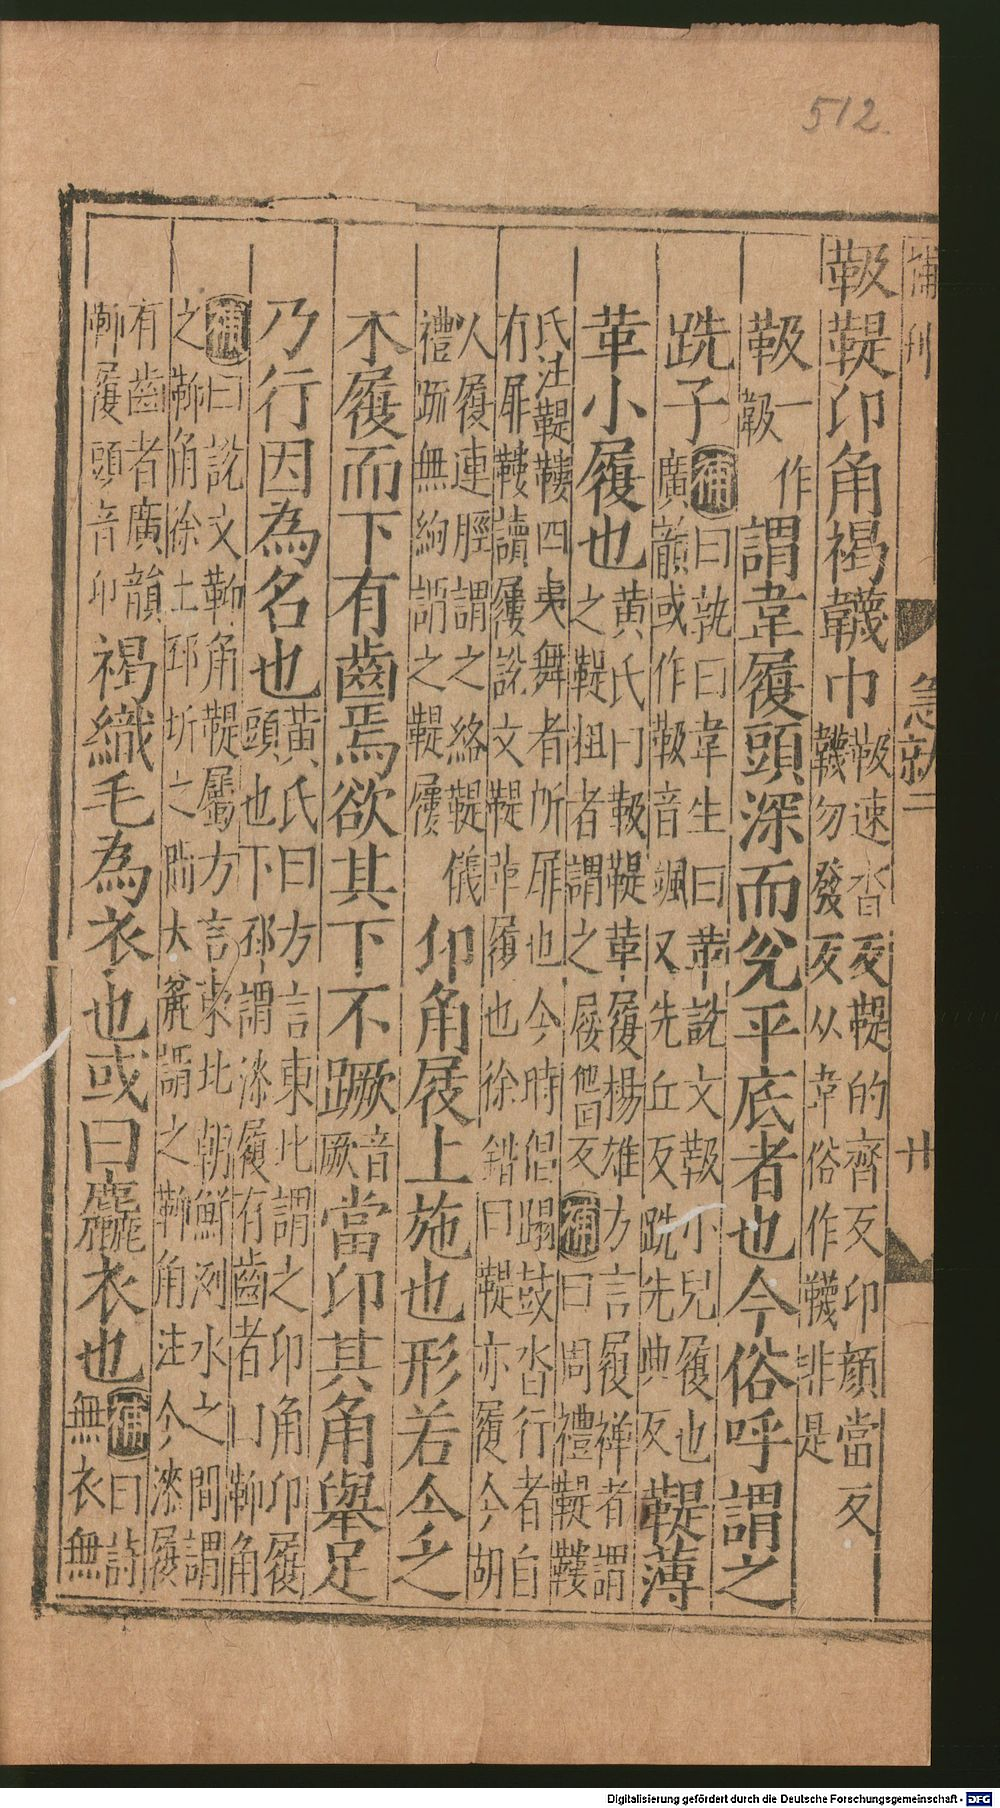 512.
急就二
廿
靸鞮卬角褐韤巾靸速沓反鞮的齊反卬顔當反
韤勿發反从韋俗作韈非是
靸一作
靸謂韋履頭深而兊平底者也今俗呼謂之
跣子補曰孰曰韋生曰革說文靸小兒履也
廣韻或作靸音颯又先丘反跣先典反鞮薄
革小履也黄氏曰靸鞮革履楊雄方言履禅者謂
之鞮粗者謂之屦他回反補曰周禮鞮鞻
氏注鞮鞻四夷舞者所屝也今時倡蹋鼓沓行者自
有屝鞻讀屨說文鞮革履也徐鍇曰鞮亦履今胡
人履連脛謂之絡鞮儀
禮䟽無絇謂之鞮屨卬角屐上施也形若今之
木履而下有齒焉欲其下不蹶音
厥當卬其角舉足
乃行因為名也黄氏曰方言東北謂之卬角卬履
頭也下邳謂漆履有齒者曰䩕角
補曰說文䩕角鞮屬方言東北朝鮮洌水之間謂
之䩕角徐土邳圻之間大麄謂之䩕角注今漆履
有齒者廣韻
䩕履頭音卬褐織毛為衣也或曰麤衣也補曰詩
無衣無
Digitalisierung gefördert durch die Deutsche Forschungsgemeinschaft - DFG